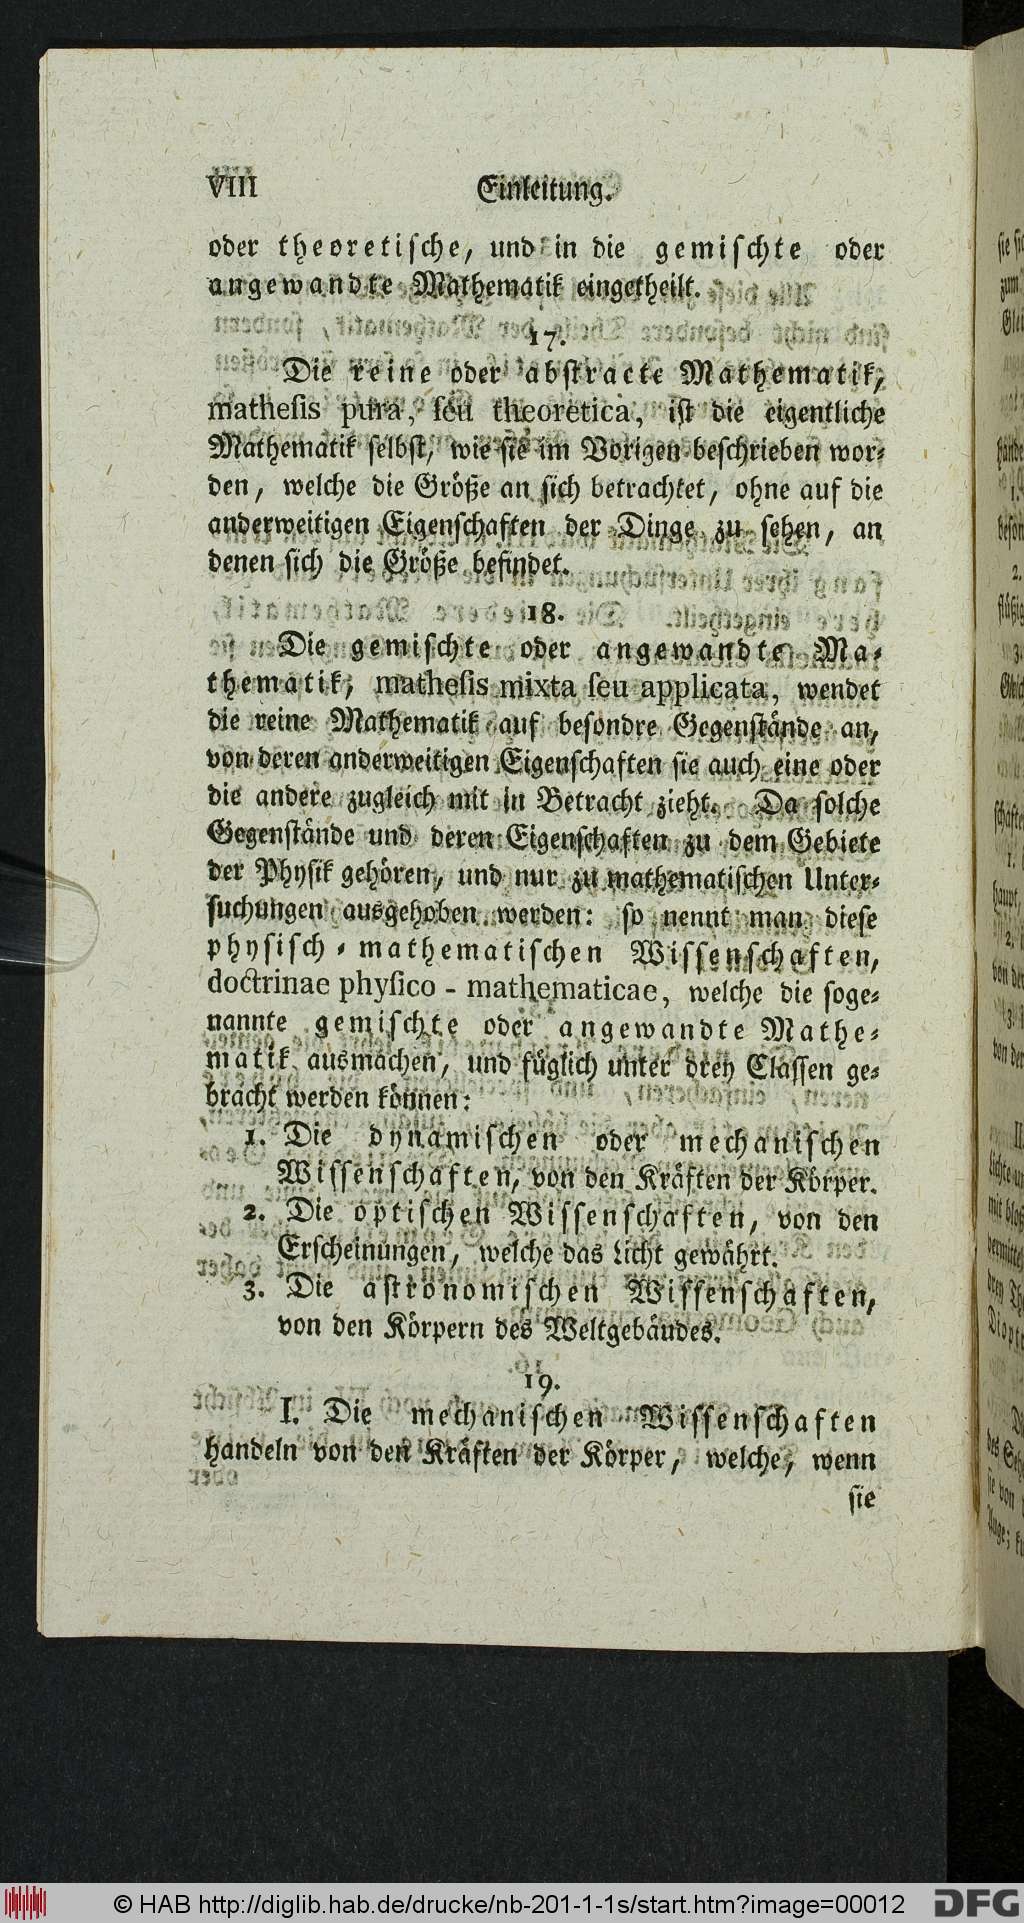 VIII Einleitung.
oder theoretische, und in die gemischte oder
angewandte Mathematik eingetheilt.
17.
Die reine oder abstracte Mathematik,
matheſis pura, ſeu theoretica, iſt die eigentliche
Mathematik ſelbſt, wie ſie im Vorigen beſchrieben wor⸗
den, welche die Größe an ſich betrachtet, ohne auf die
anderweitigen Eigenſchaften der Dinge zu ſehen, an
denen ſich die Größe befindet.
18.
Die gemiſchte oder angewandte Ma⸗
thematik, matheſis mixta ſeu applicata, wendet
die reine Mathematik auf beſondre Gegenſtände an,
von deren anderweitigen Eigenſchaften ſie auch eine oder
die andere zugleich mit in Betracht zieht. Da ſolche
Gegenſtände und deren Eigenſchaften zu dem Gebiete
der Phyſik gehören, und nur zu mathematiſchen Unter⸗
ſuchungen ausgehoben werden: ſo nennt man dieſe
phyſiſch⸗mathematiſchen Wiſſenſchaften,
doctrinae phyſico - mathematicae, welche die ſoge⸗
nannte gemiſchte oder angewandte Mathe⸗
matik ausmachen, und füglich unter drey Claſſen ge⸗
bracht werden können:
1. Die dynamiſchen oder mechaniſchen
Wiſſenſchaften, von den Kräften der Körper.
2. Die optiſchen Wiſſenſchaften, von den
Erſcheinungen, welche das Licht gewährt.
3. Die aſtronomiſchen Wiſſenſchaften,
von den Körpern des Weltgebäudes.
19.
I. Die mechaniſchen Wiſſenſchaften
handeln von den Kräften der Körper, welche, wenn
ſie
© HAB http://diglib.hab.de/drucke/nb-201-1-1s/start.htm?image=00012
DFG